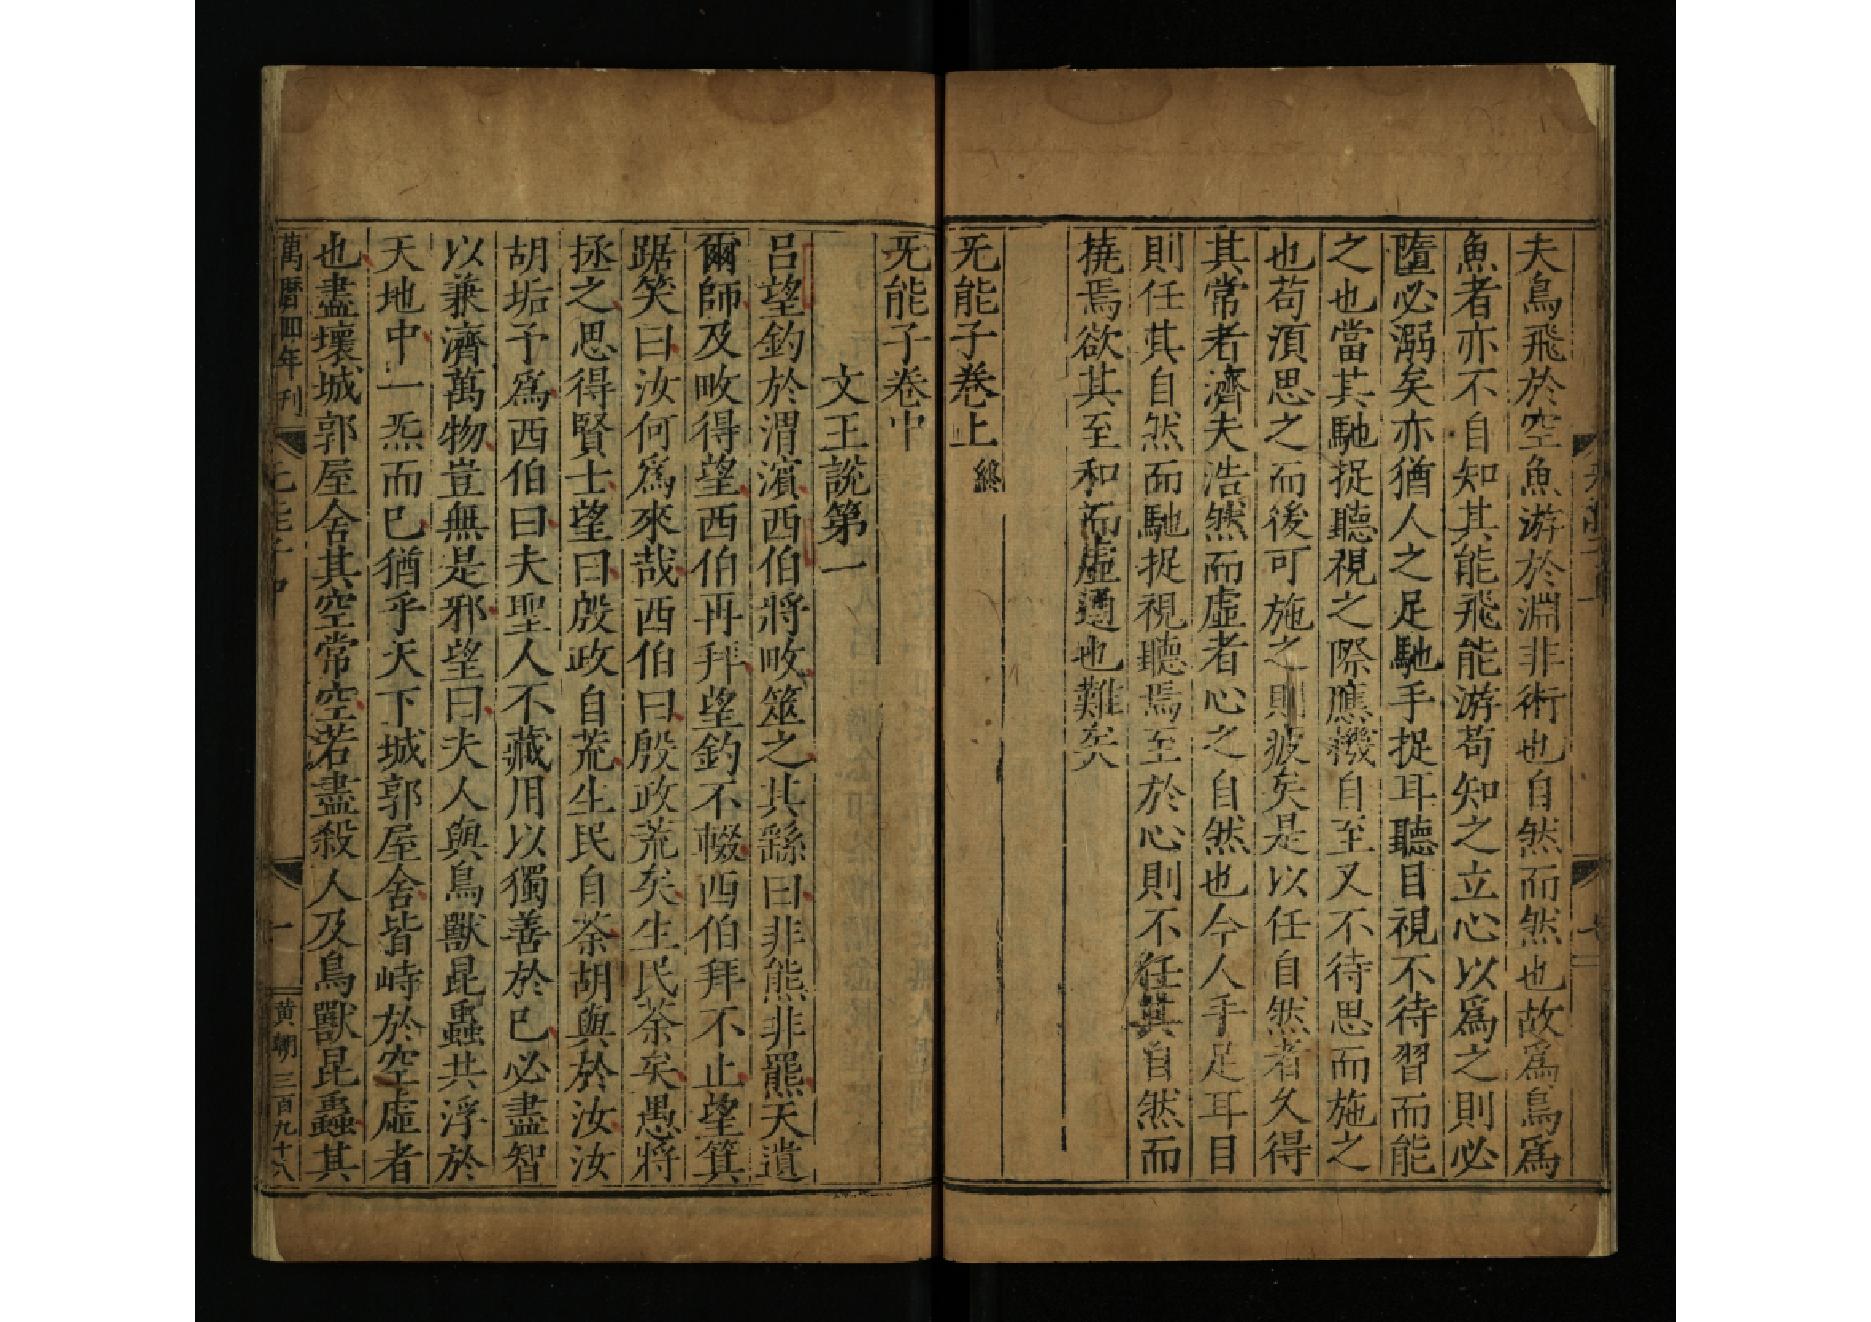 夫鳥飛於空魚游於淵非術也自然而然也故爲鳥爲
魚者亦不自知其能飛能游苟知之立心以爲之則必
墮必溺矣亦猶人之足馳手捉耳聽目視不待習而能
之也當其馳捉聽視之際應機自至又不待思而施之
也苟須思之而後可施之則疲矣是以任自然者久得
其常者濟夫浩然而虛者心之自然也今人手足耳目
則任其自然而馳捉視聽焉至於心則不任其自然而
撓焉欲其至和而虛通也難矣
旡能子卷上 終
旡能子卷中
文王說第一
呂望釣於渭濱西伯將畋筮之其繇曰非熊非羆天遺
爾師及畋得望西伯再拜望釣不輟西伯拜不止望箕
踞笑曰汝何爲來哉西伯曰殷政荒矣生民荼矣愚將
拯之思得賢士望曰殷政自荒生民自荼胡與於汝汝
胡垢予爲西伯曰夫聖人不藏用以獨善於已必盡智
以兼濟萬物豈無是邪望曰夫人與鳥獸昆蟲共浮於
天地中一炁而已猶乎天下城郭屋舍皆峙於空虛者
也盡壞城郭屋舍其空常空若盡殺人及鳥獸昆蟲其
萬曆四年刊
一
黄朝 三百九十八